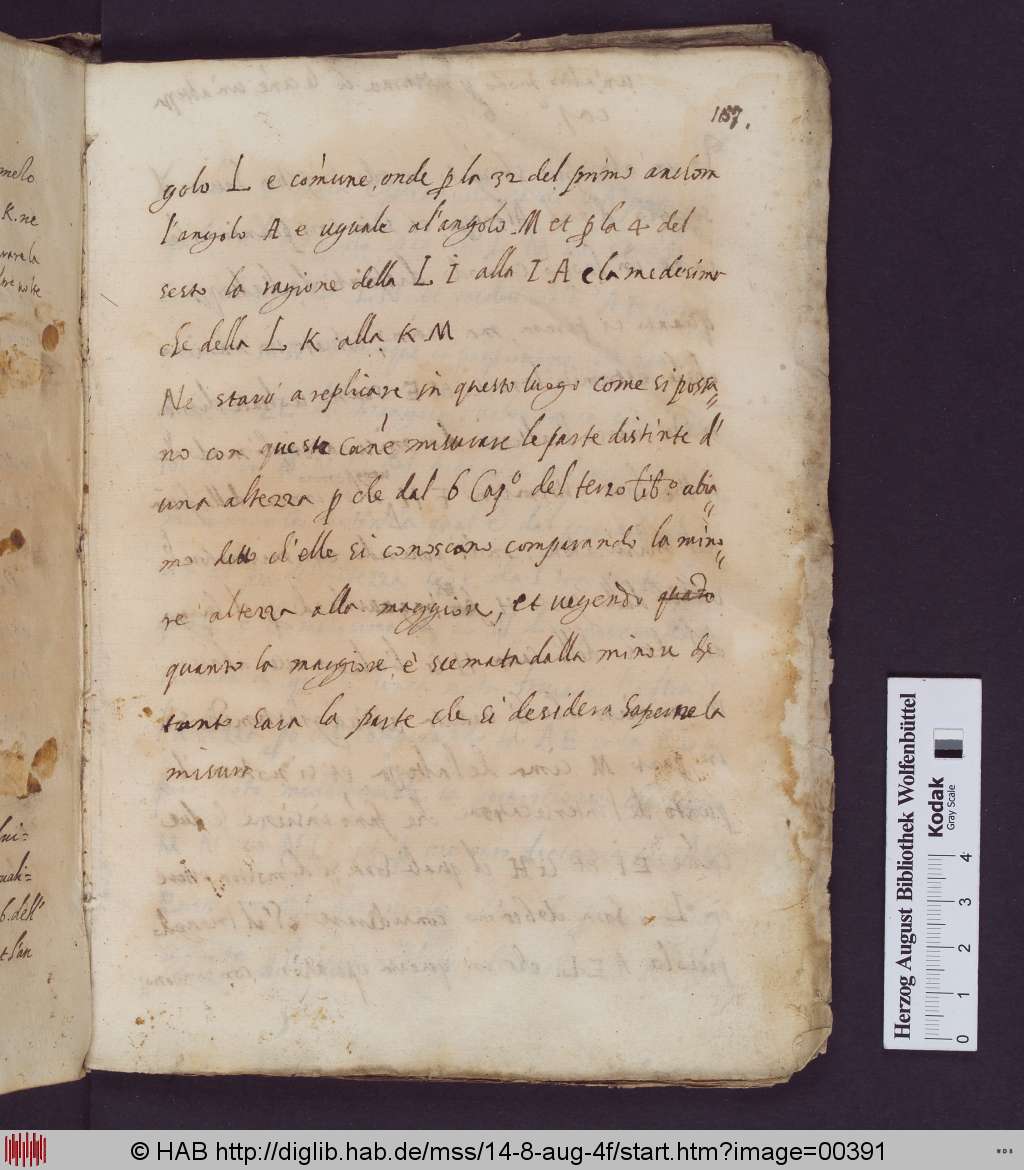 187.
golo L e comune, onde p la 32 del primo anchora
l'angolo A e uguale al'angolo M et p la 4 del
sesto la ragione della L I alla I A e la medesima
che della L K alla K M
Ne staro a replicare in questo luogo come si possa=
no con queste canne misurare le parte distinte d'
una altezza p che dal 6 Capo del terzo libo abia=
mo detto ch'elle si conoscano comparando la mino=
re altezza alla maggiore, et vegendo
quanto la maggiore è scemata dalla minore che
tanto sara la parte che si desidera saperne la
misura
melo
K. ne
lui=
6. dell'
et l'an
Herzog August Bibliothek Wolfenbüttel
Kodak
Gray Scale
0 1 2 3 4
© HAB http://diglib.hab.de/mss/14-8-aug-4f/start.htm?image=00391